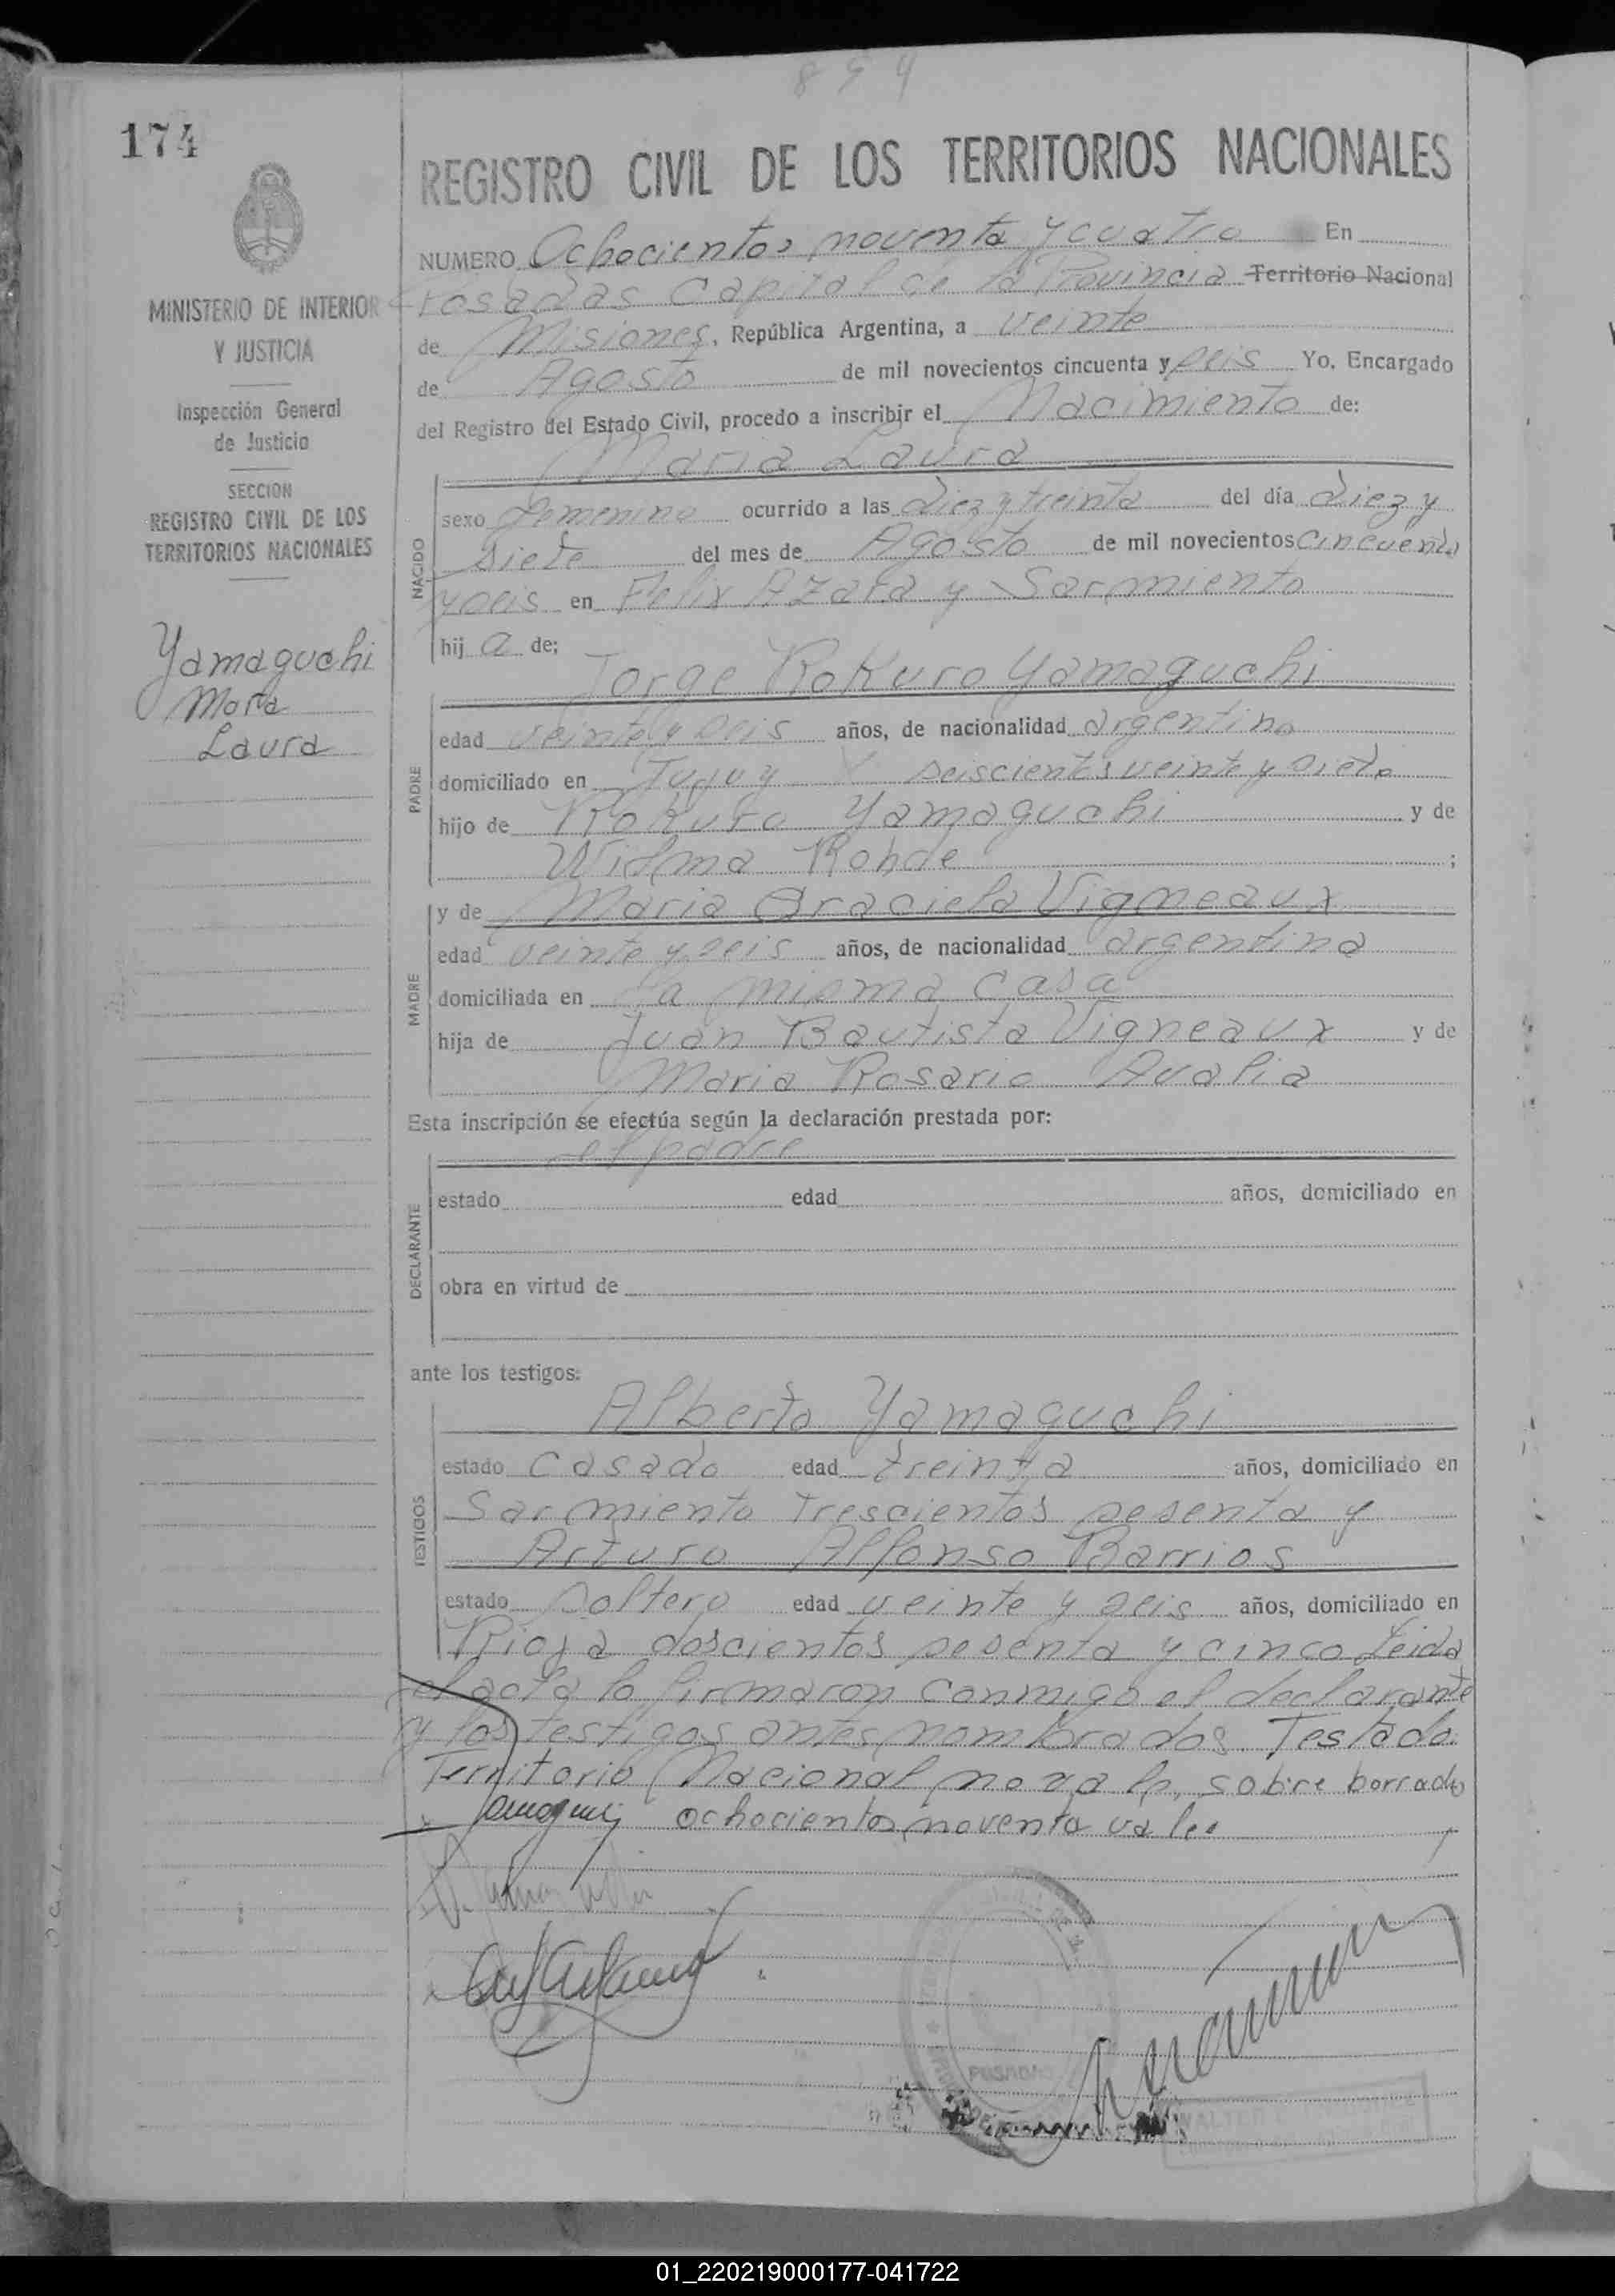 894
174
REGISTRO CIVIL DE LOS TERRITORIOS NACIONALES
NUMERO Ochocientos noventa y cuatro En
Posadas Capital de la Provincia Territorio Nacional
de Misiones, República Argentina, a veinte
de Agosto de mil novecientos cincuenta y seis Yo, Encargado
del Registro del Estado Civil, procedo a inscribir el Nacimiento de:
Maria Laura
MINISTERIO DE INTERIOR
Y JUSTICIA
Inspección General
de Justicia
SECCION
REGISTRO CIVIL DE LOS
TERRITORIOS NACIONALES
Yamaguchi
Maria
Laura
NACIDO
sexo femenino ocurrido a las diez y treinta del día diez y
siete del mes de Agosto de mil novecientos cincuenta
y seis en Felix Azara y Sarmiento
hija de:
Jorge Rokuro Yamaguchi
PADRE
edad veinte y seis años, de nacionalidad argentino
domiciliado en Jujuy seiscientos veinte y siete
hijo de Rokuro Yamaguchi y de
Wilma Rohde ;
MADRE
y de Maria Graciela Vigneaux
edad veinte y seis años, de nacionalidad argentina
domiciliada en la misma casa
hija de Juan Bautista Vigneaux y de
Maria Rosario Avalia
Esta inscripción se efectúa según la declaración prestada por:
el padre
DECLARANTE
estado edad años, domiciliado en
obra en virtud de
ante los testigos:
TESTIGOS
Alberto Yamaguchi
estado casado edad treinta años, domiciliado en
Sarmiento trescientos sesenta y
Arturo Alfonso Barrios
estado soltero edad veinte y seis años, domiciliado en
Rioja doscientos sesenta y cinco Leida
el acta la firmaron conmigo el declarante
y los testigos antes nombrados. Testado.
Territorio Nacional no vale, sobre borrado
ochocientos noventa vale
POSADAS
WALTER
01_220219000177-041722